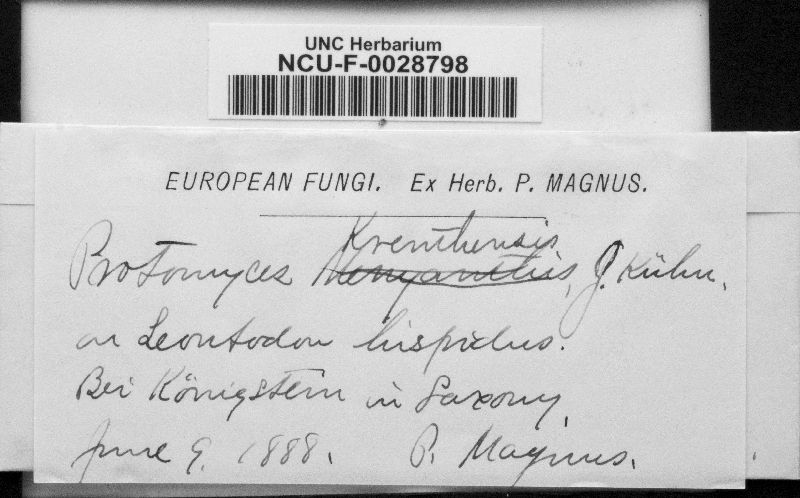 UNC Herbarium
NCU-F-0028798
EUROPEAN FUNGI. Ex Herb. P. MAGNUS.
Krenthensis
Protomyces Menyanthis, J. Kühn.
on Leontodon hispidus.
Bei Königstein in Saxony,
June 9. 1888. P. Magnus.